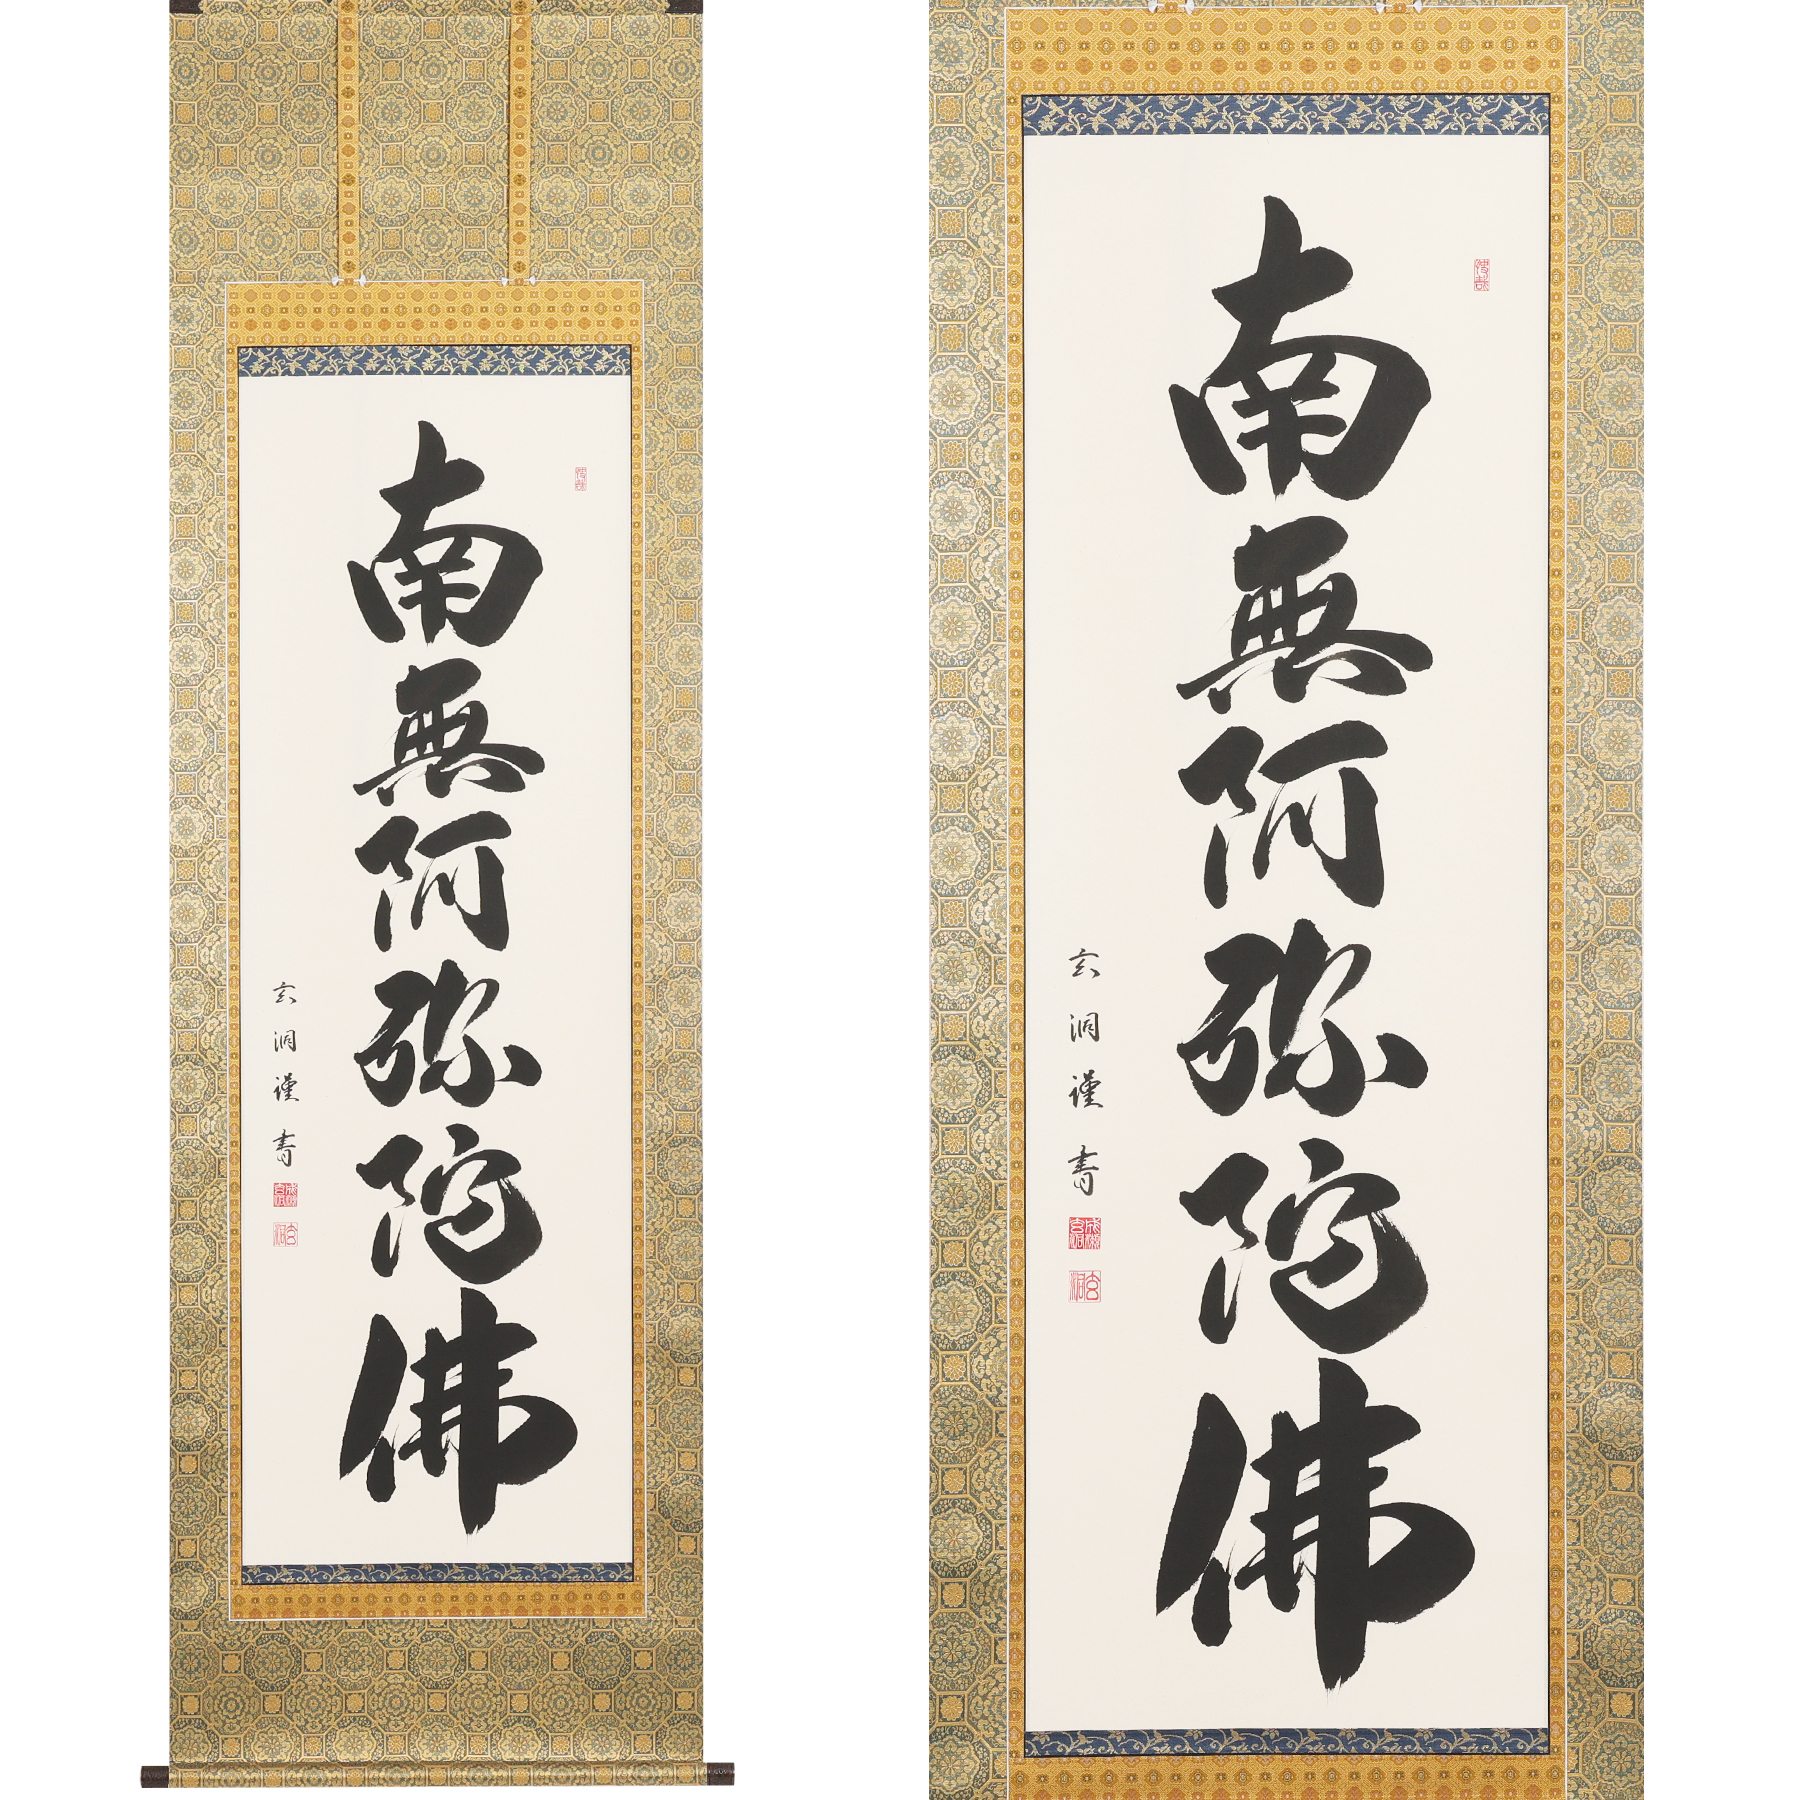 南無阿弥陀佛
玄洞謹書
南無阿弥陀佛
玄洞謹書